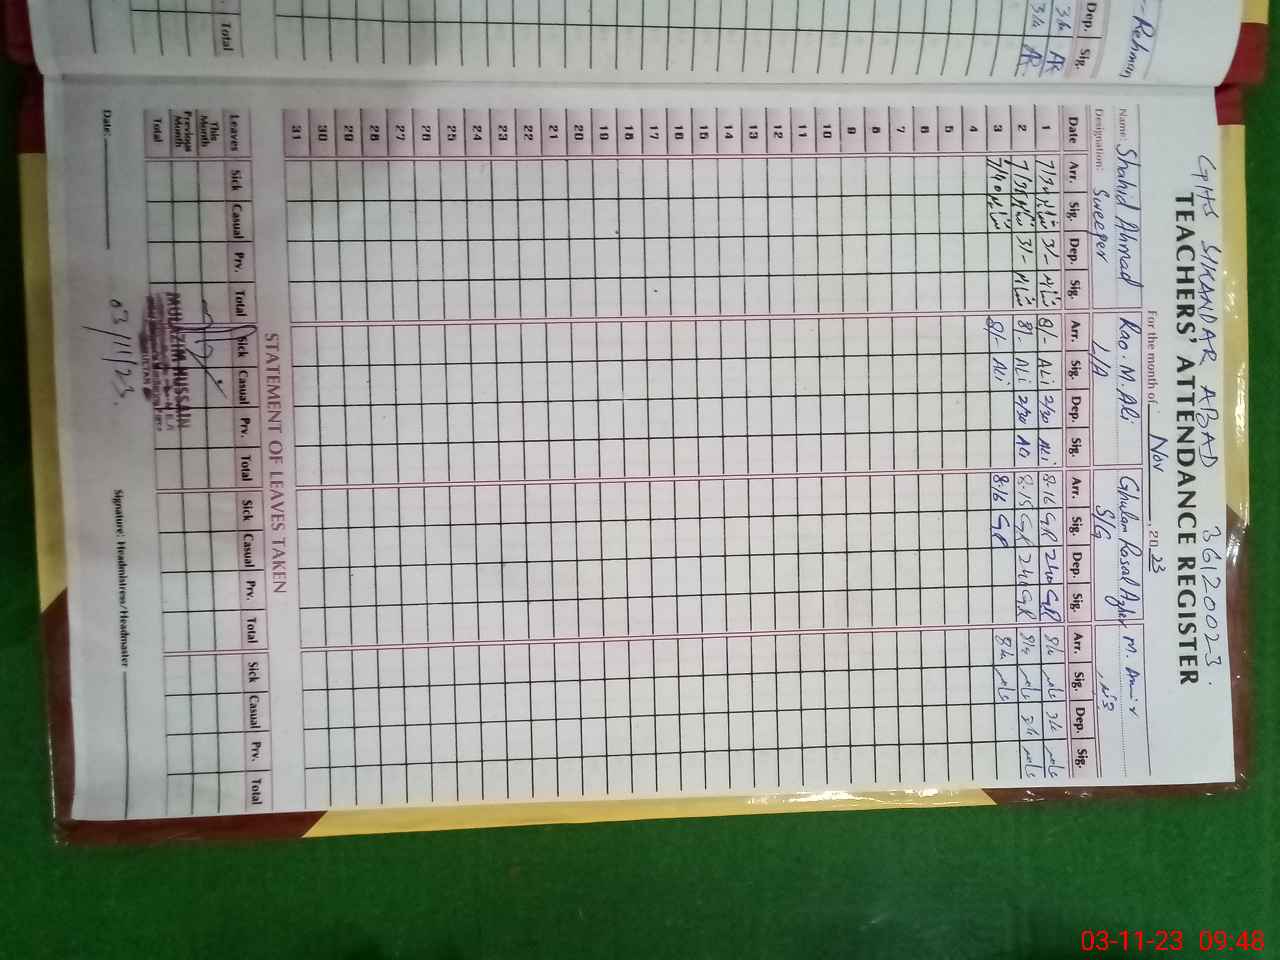 GHS SIKANDAR ABAD 36120023.
TEACHERS' ATTENDANCE REGISTER
For the month of Nov, 2023
Name: Shahid Ahmad Rao. M. Ali Ghulam Rasool Azher M. Amir
Designation: Sweeper L/A S/G
Date Arr. Sig. Dep. Sig. Arr. Sig. Dep. Sig. Arr. Sig. Dep. Sig. Arr. Sig. Dep. Sig.
1 3/- 8/- ALi 2/30 ALi 8.16 GR 240 GR
2 3/- 8/- ALi 2/30 8.15 GR 240 GR
3 7/40 8/- ALi 8.16 GR
4
5
6
7
8
9
10
11
12
13
14
15
16
17
18
19
20
21
22
23
24
25
26
27
28
29
30
31
STATEMENT OF LEAVES TAKEN
Leaves Sick Casual Prv. Total Sick Casual Prv. Total Sick Casual Prv. Total Sick Casual Prv. Total
This Month
Previous Month
Total
MULAZIM HUSSAIN
Date: 03/11/23. Signature: Headmistress/Headmaster
-Rehman
Dep. Sig.
AR
AR
Total
03-11-23 09:48